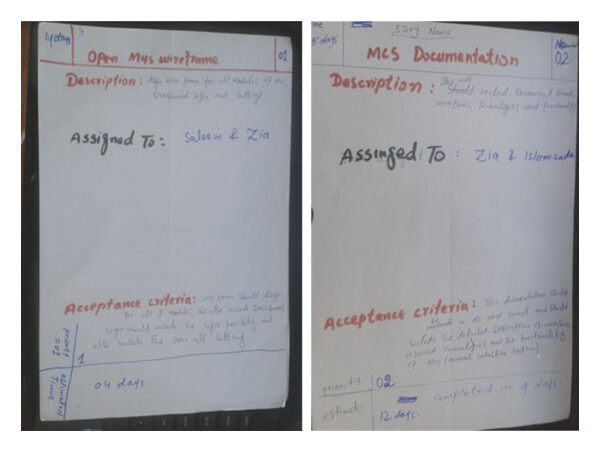 4 days
Open M4s wireframe
01
Description: wire frame for all modules of
Dashboard Login and Setting
Assigned To: Saleem & Zia
Acceptance criteria: wire frame should design
for all 3 modules, also include Dashboard,
Login should include the Login facility and
also include The over all Setting
priority
=01
estimated
Time
04 days
Story Name
5 days
MCS Documentation
02
Description:
Should include Document
workflow, Technologies and functionality
Assinged To: Zia & Islomzada
Acceptance criteria: This documentation should
in MS word format and should
include the detailed Description of workflow,
required Technologies and the functionality
of MCS
priority 02
completed in 9 days.
estimate
12 days.